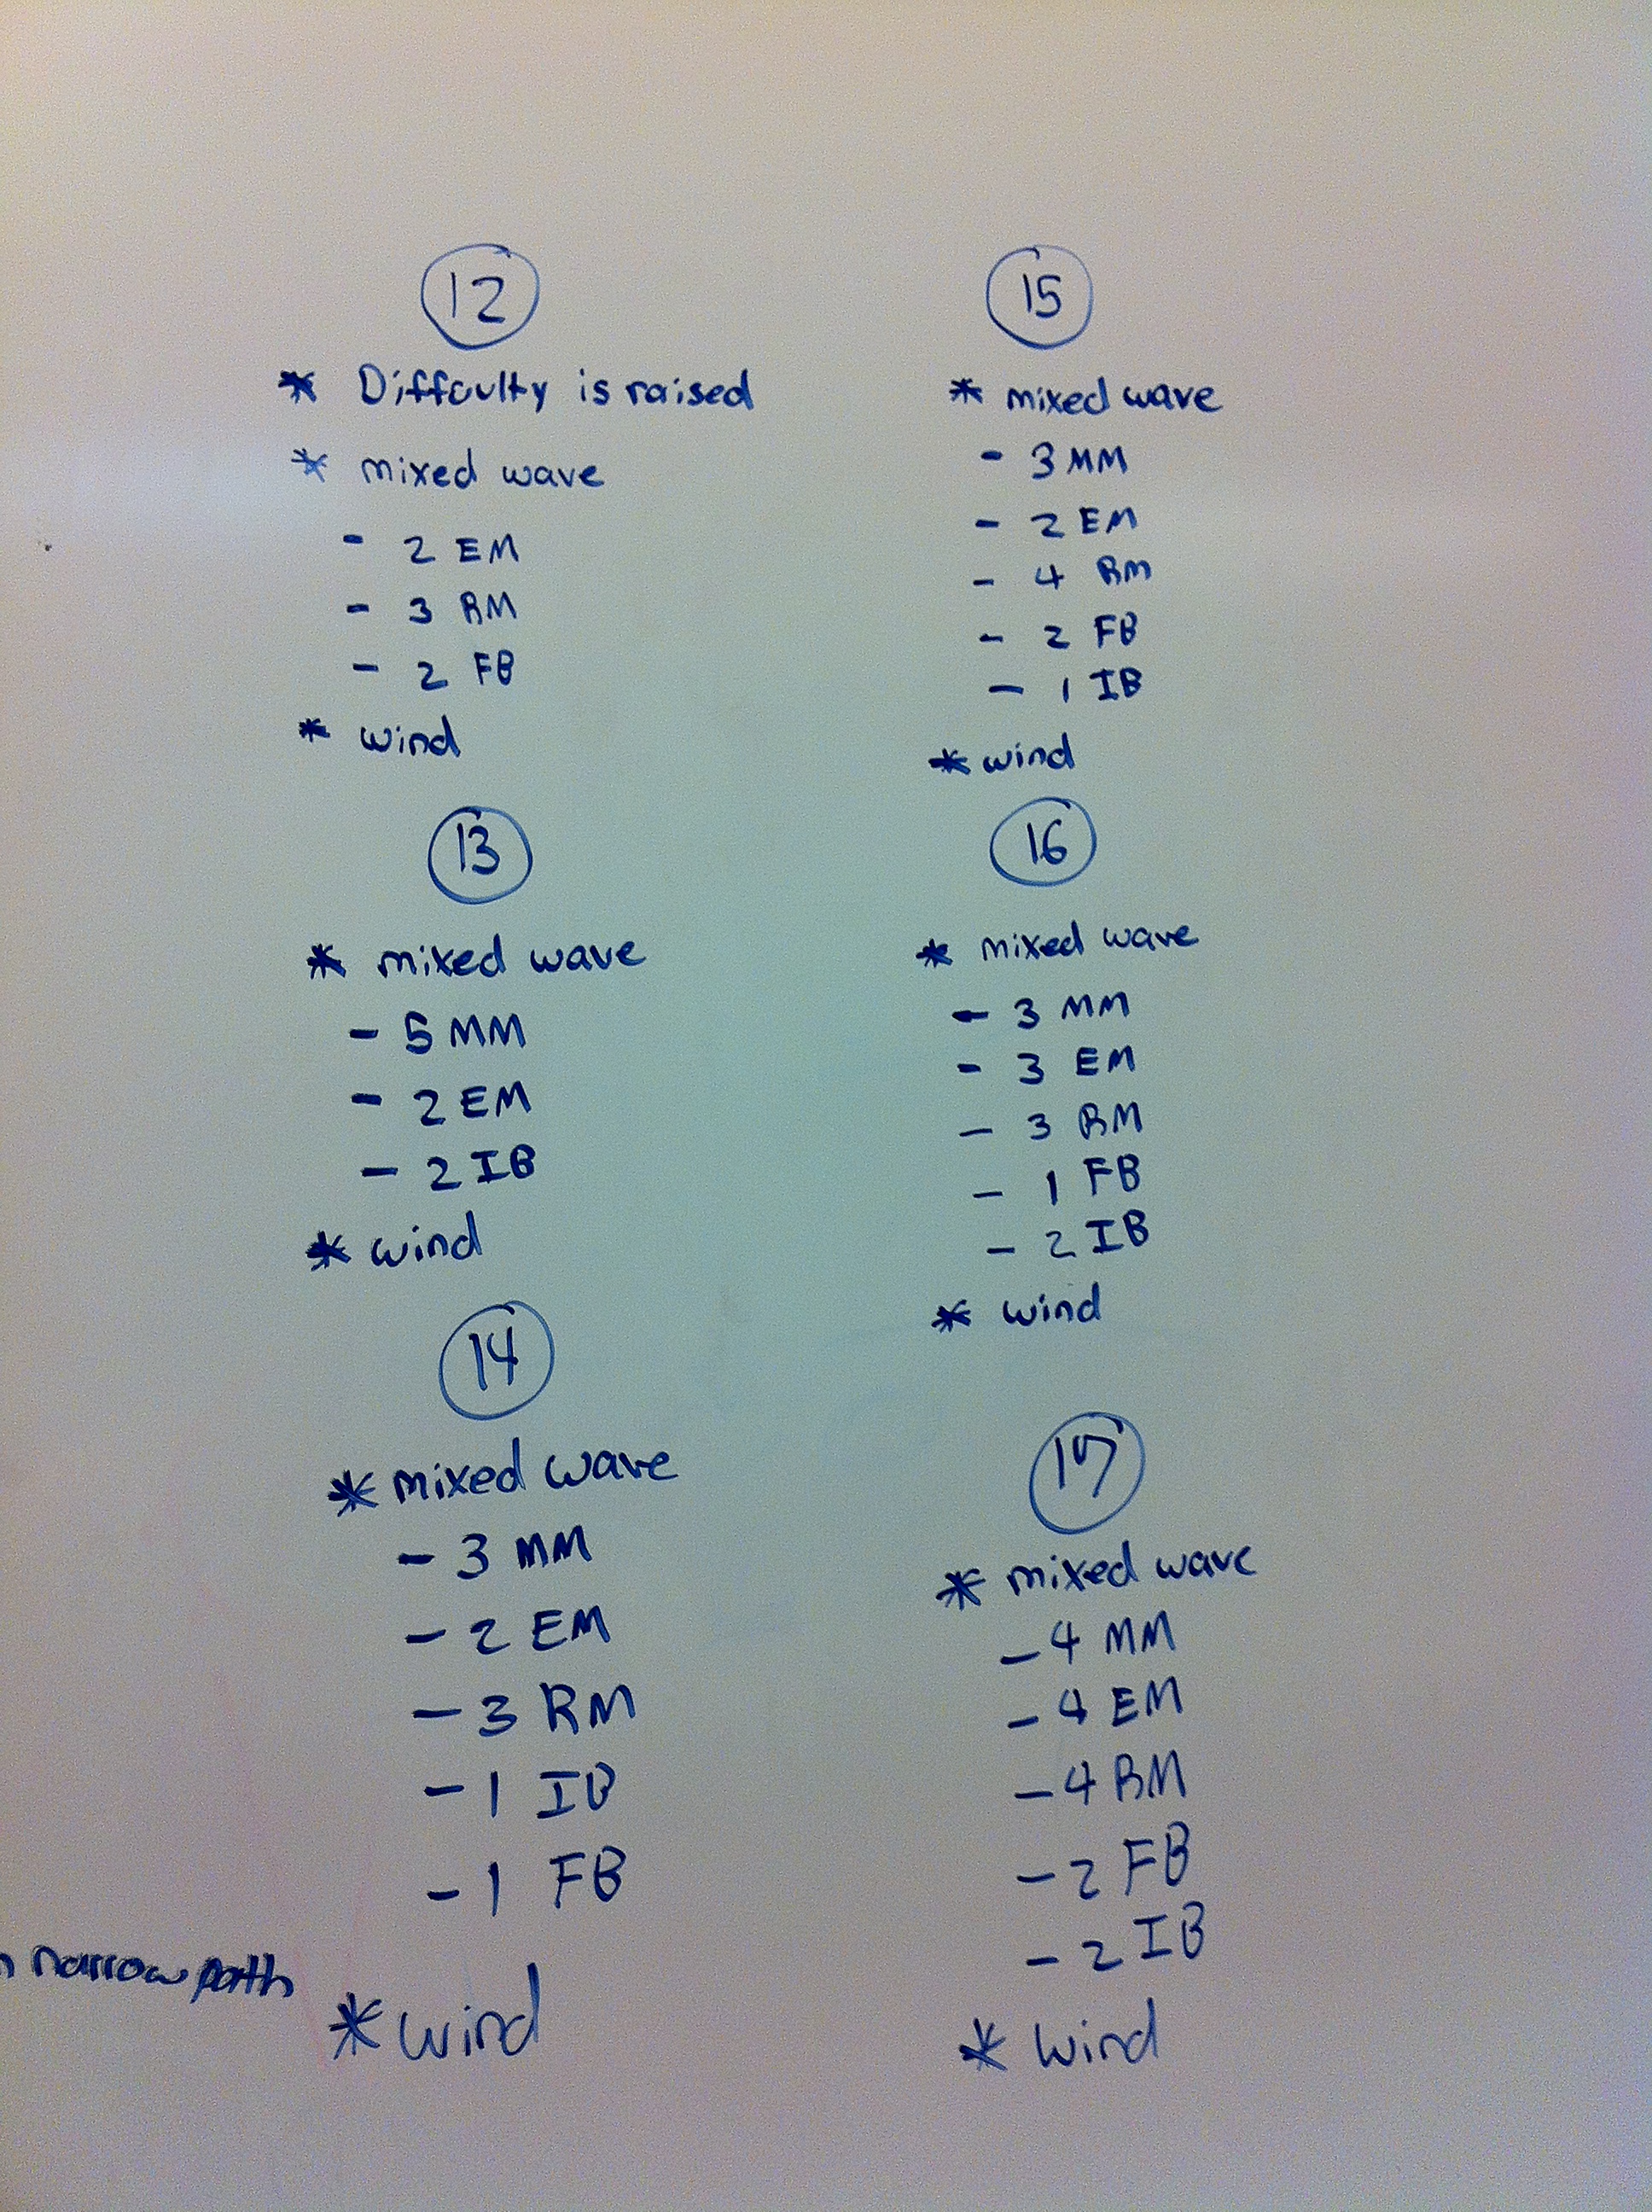 12
* Diffculty is raised
* mixed wave
- 2 EM
- 3 RM
- 2 FB
* wind
13
* mixed wave
- 5 MM
- 2 EM
- 2 IB
* wind
14
* mixed wave
- 3 MM
- 2 EM
- 3 RM
- 1 IB
- 1 FB
narrow path
* wind
15
* mixed wave
- 3 MM
- 2 EM
- 4 RM
- 2 FB
- 1 IB
* wind
16
* mixed wave
- 3 MM
- 3 EM
- 3 RM
- 1 FB
- 2 IB
* wind
17
* mixed wave
- 4 MM
- 4 EM
- 4 RM
- 2 FB
- 2 IB
* wind